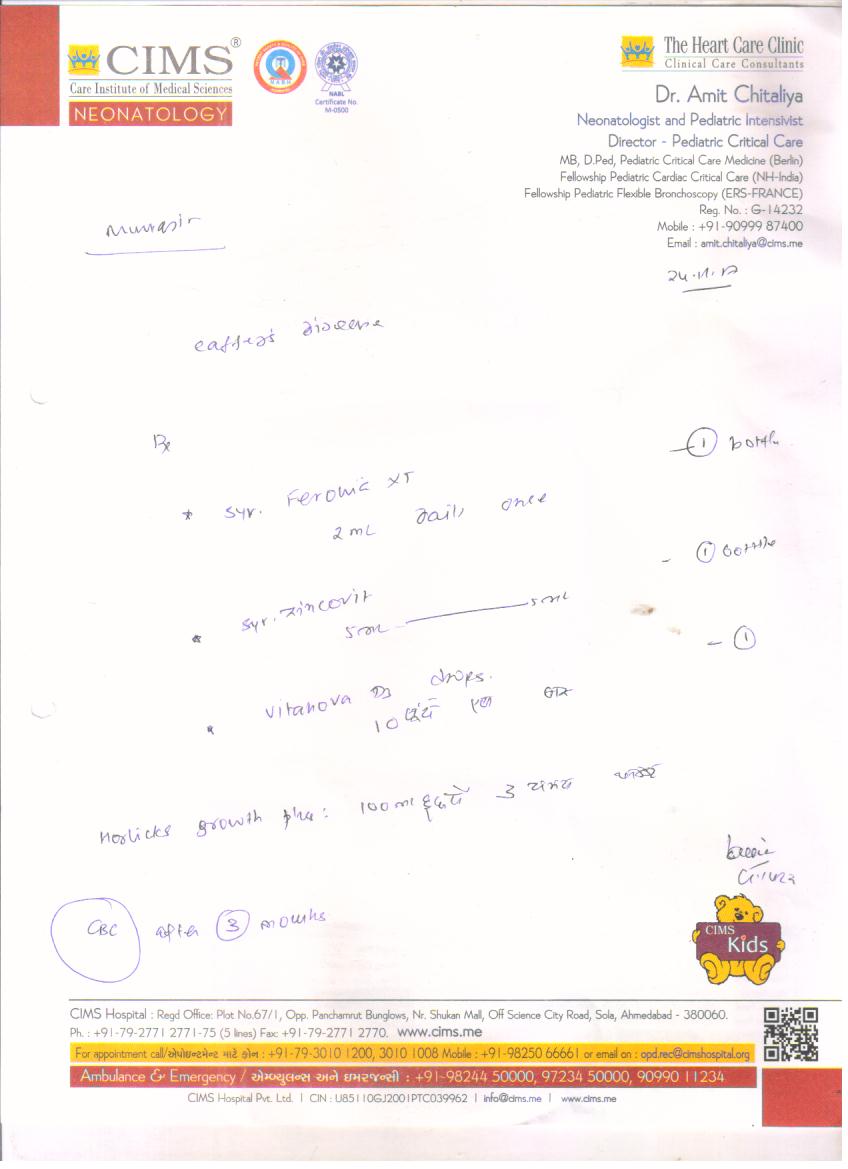 CIMS®
Care Institute of Medical Sciences
NEONATOLOGY
NABH
NABL
Certificate No.
M-0500
The Heart Care Clinic
Clinical Care Consultants
Dr. Amit Chitaliya
Neonatologist and Pediatric Intensivist
Director - Pediatric Critical Care
MB, D.Ped, Pediatric Critical Care Medicine (Berlin)
Fellowship Pediatric Cardiac Critical Care (NH-India)
Fellowship Pediatric Flexible Bronchoscopy (ERS-FRANCE)
Reg. No. : G-14232
Mobile : +91-90999 87400
Email : amit.chitaliya@cims.me
24.11.17
Rx
1 bottle
* Syr. Feronia XT
2 mL daily once
- 1 bottle
* Syr. Zincovit
5 mL 5 mL
- 1
* Vitanova D3 drops.
10
Horlicks growth plus : 100 ml 3
CBC after 3 months
CIMS
Kids
CIMS Hospital : Regd Office: Plot No.67/1, Opp. Panchamrut Bunglows, Nr. Shukan Mall, Off Science City Road, Sola, Ahmedabad - 380060.
Ph. : +91-79-2771 2771-75 (5 lines) Fax: +91-79-2771 2770. www.cims.me
For appointment call/એપોઇન્ટમેન્ટ માટે ફોન : +91-79-3010 1200, 3010 1008 Mobile : +91-98250 66661 or email on : opd.rec@cimshospital.org
Ambulance & Emergency / એમ્બ્યુલન્સ અને ઇમરજન્સી : +91-98244 50000, 97234 50000, 90990 11234
CIMS Hospital Pvt. Ltd. | CIN : U85110GJ2001PTC039962 | info@cims.me | www.cims.me